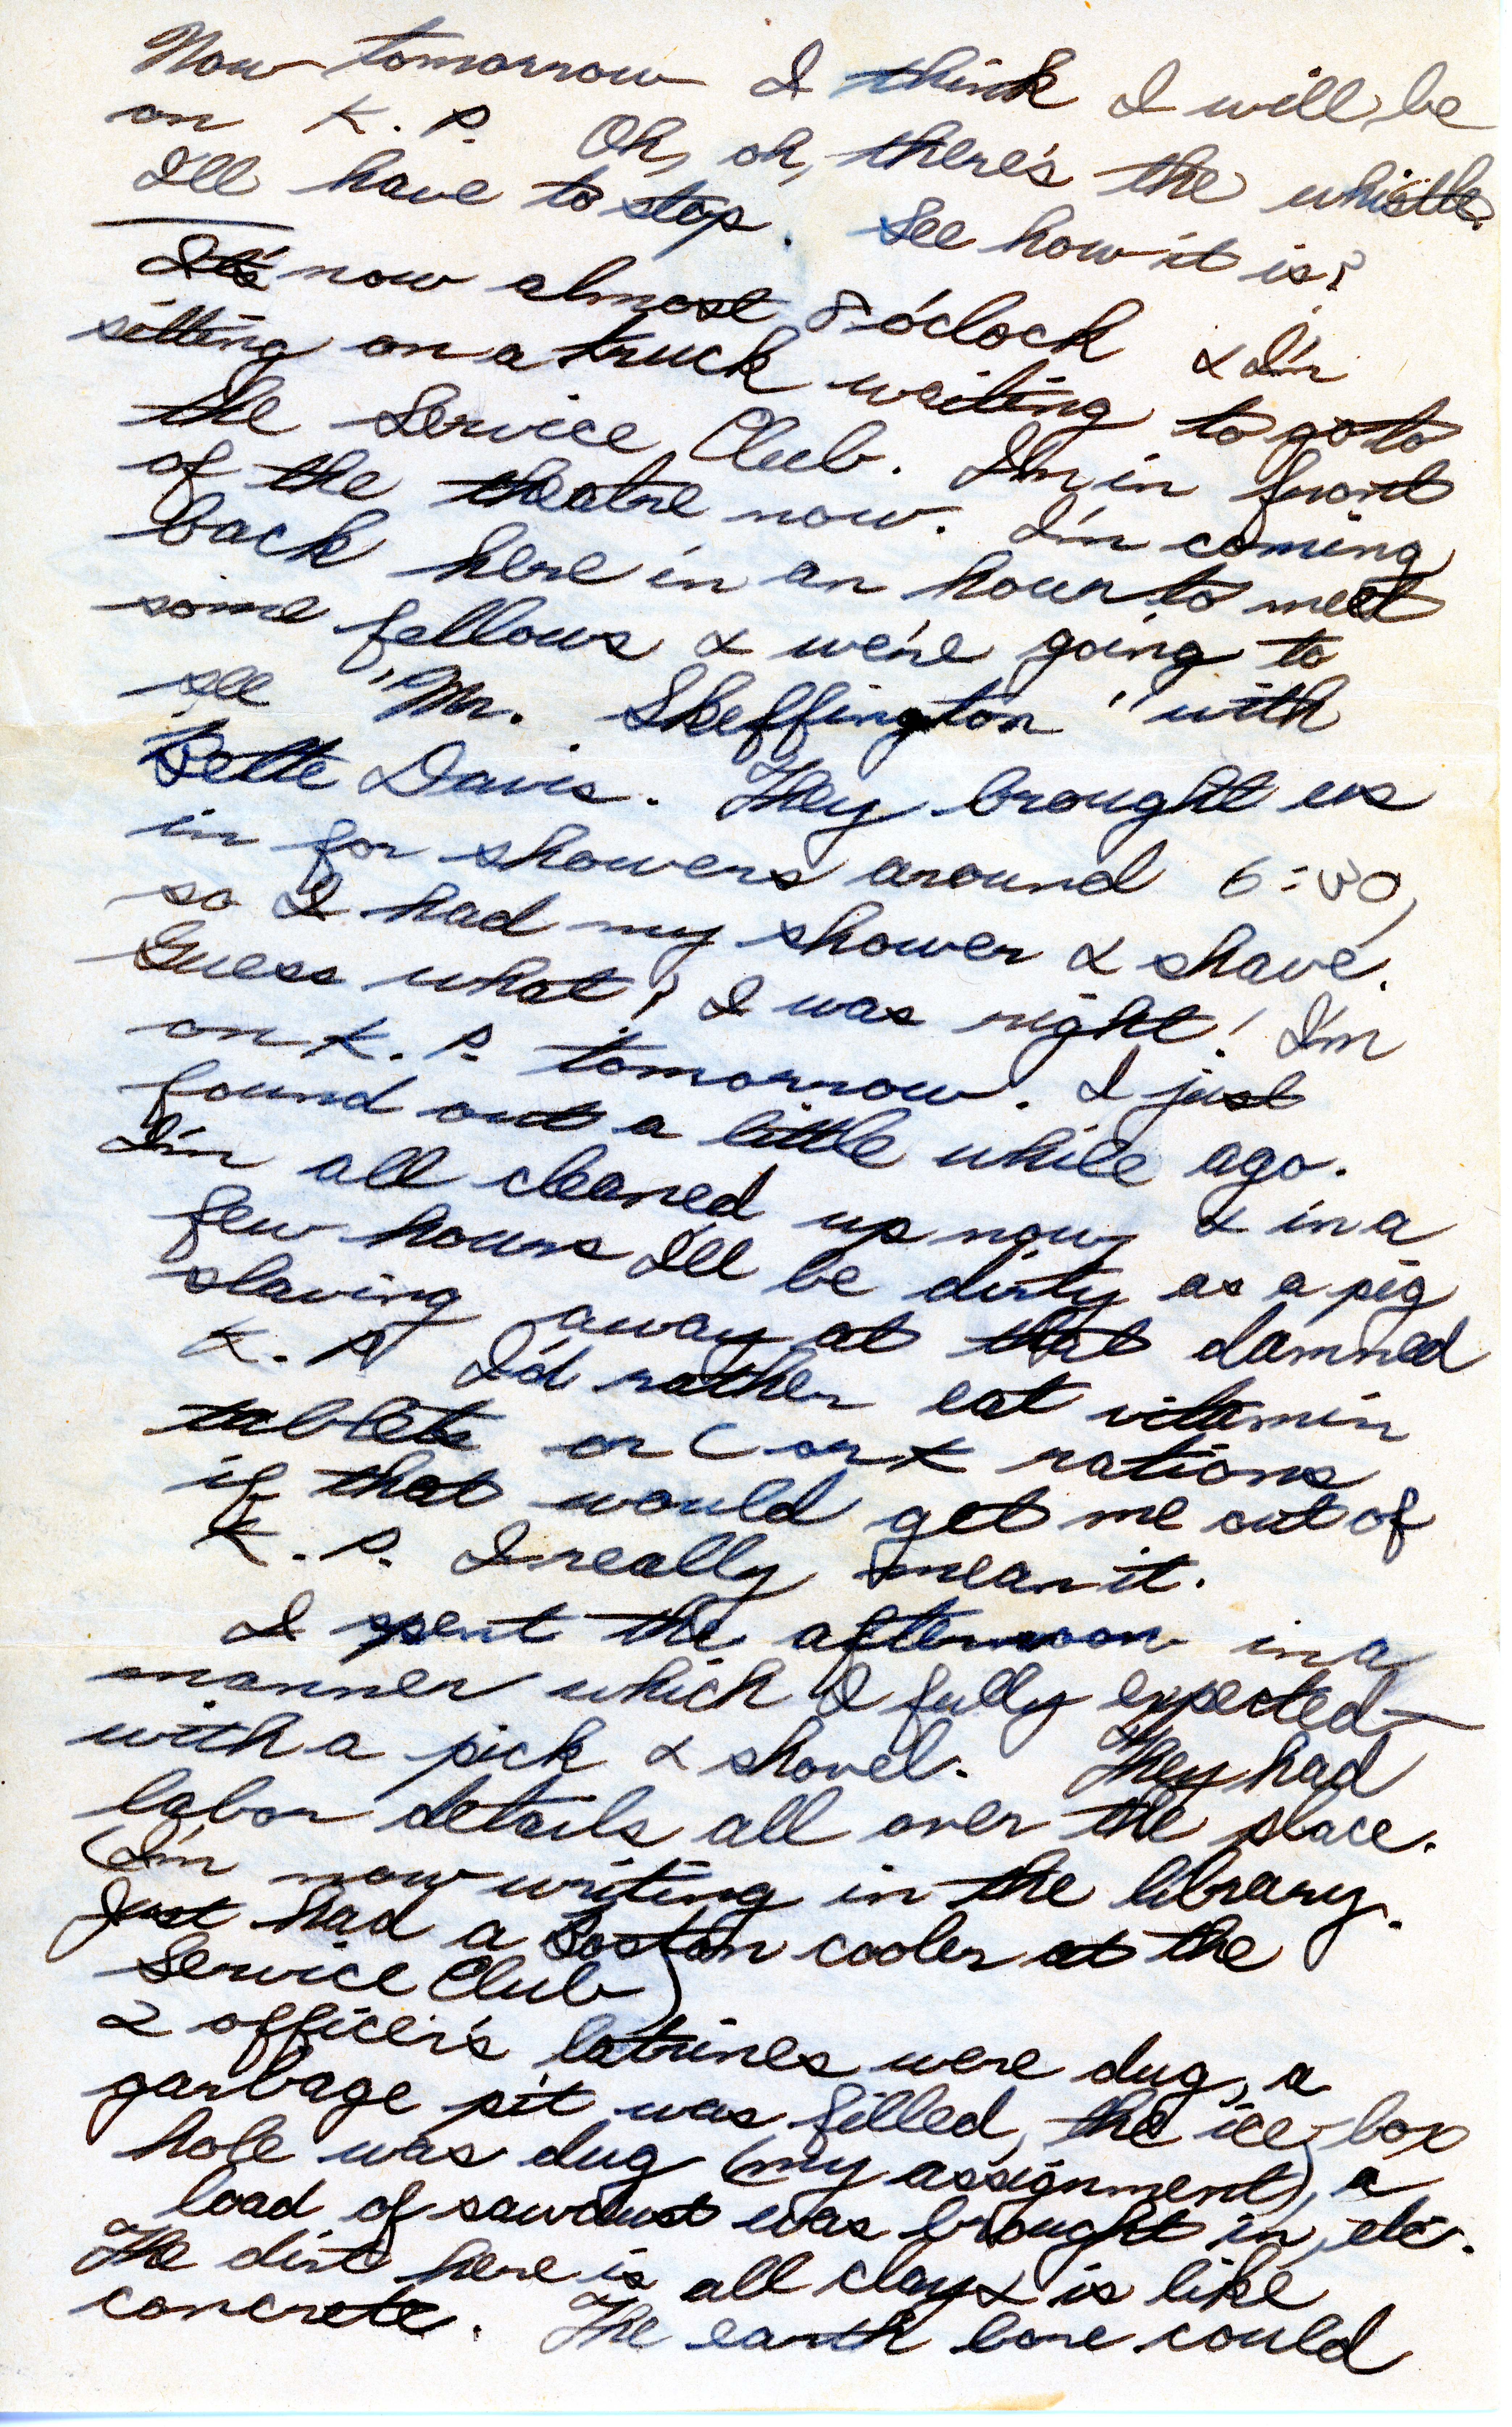 Now tomorrow I think I will be
on K.P. Oh, oh, there's the whistle.
I'll have to stop. See how it is?
It's now almost 8 o'clock & I'm
sitting on a truck waiting to go to
the Service Club. I'm in front
of the theatre now. I'm coming
back here in an hour to meet
some fellows & we're going to
see "Mr. Skeffington" with
Bette Davis. They brought us
in for showers around 6:30,
so I had my shower & shave.
Guess what? I was right! I'm
on K.P. tomorrow. I just
found out a little while ago.
I'm all cleaned up now & in a
few hours I'll be dirty as a pig
slaving away at that damned
K.P. I'd rather eat vitamin
tablets or C or K rations
if that would get me out of
K.P. I really mean it.
I spent the afternoon in a
manner which I fully expected—
with a pick & shovel. They had
labor details all over the place.
(I'm now writing in the library.
Just had a Boston cooler at the
Service Club)
2 officer's latrines were dug, a
garbage pit was filled, the ice-box
hole was dug (my assignment), a
load of sawdust was brought in, etc.
The dirt here is all clay & is like
concrete. The earth bore could